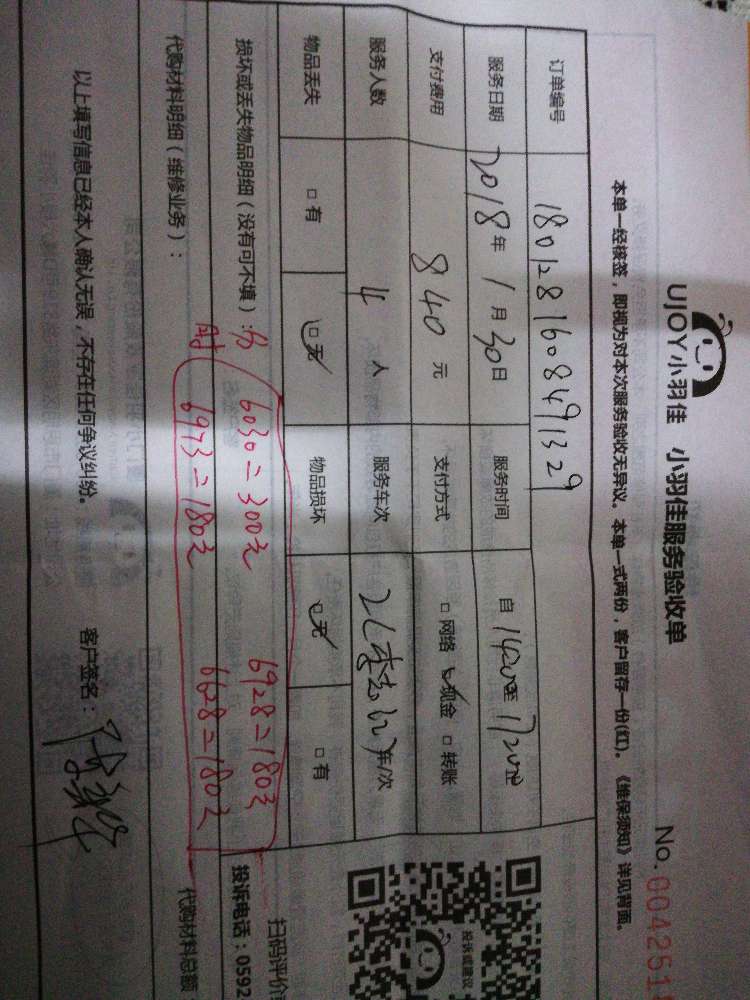 UJOY小羽佳 小羽佳服务验收单
No. 004251
本单一经核签，即视为对本次服务验收无异议。本单一式两份，客户留存一份(红)。《维保须知》详见背面。
订单编号 1801281608491329
服务日期 2018年1月30日 服务时间 自1420至1720止
支付费用 840元 支付方式 □网络 ☑现金 □转账
服务人数 4人 服务车次 车/次
物品丢失 □有 ☑无 物品损坏 ☑无 □有
损坏或丢失物品明细（没有可不填）：
6030=300元 6928=180元
代购材料明细（维修业务）：
6973=180元 6628=180元
代购材料总额
以上填写信息已经本人确认无误，不存在任何争议纠纷。
客户签名：
投诉或建议
扫码评价
投诉电话：0592